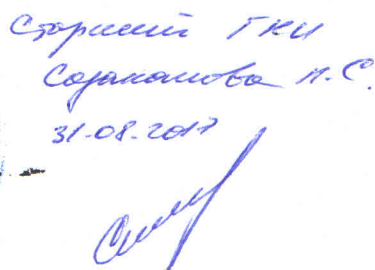 Старший ГКИ
Созаканова Н.С.
31-08-2017